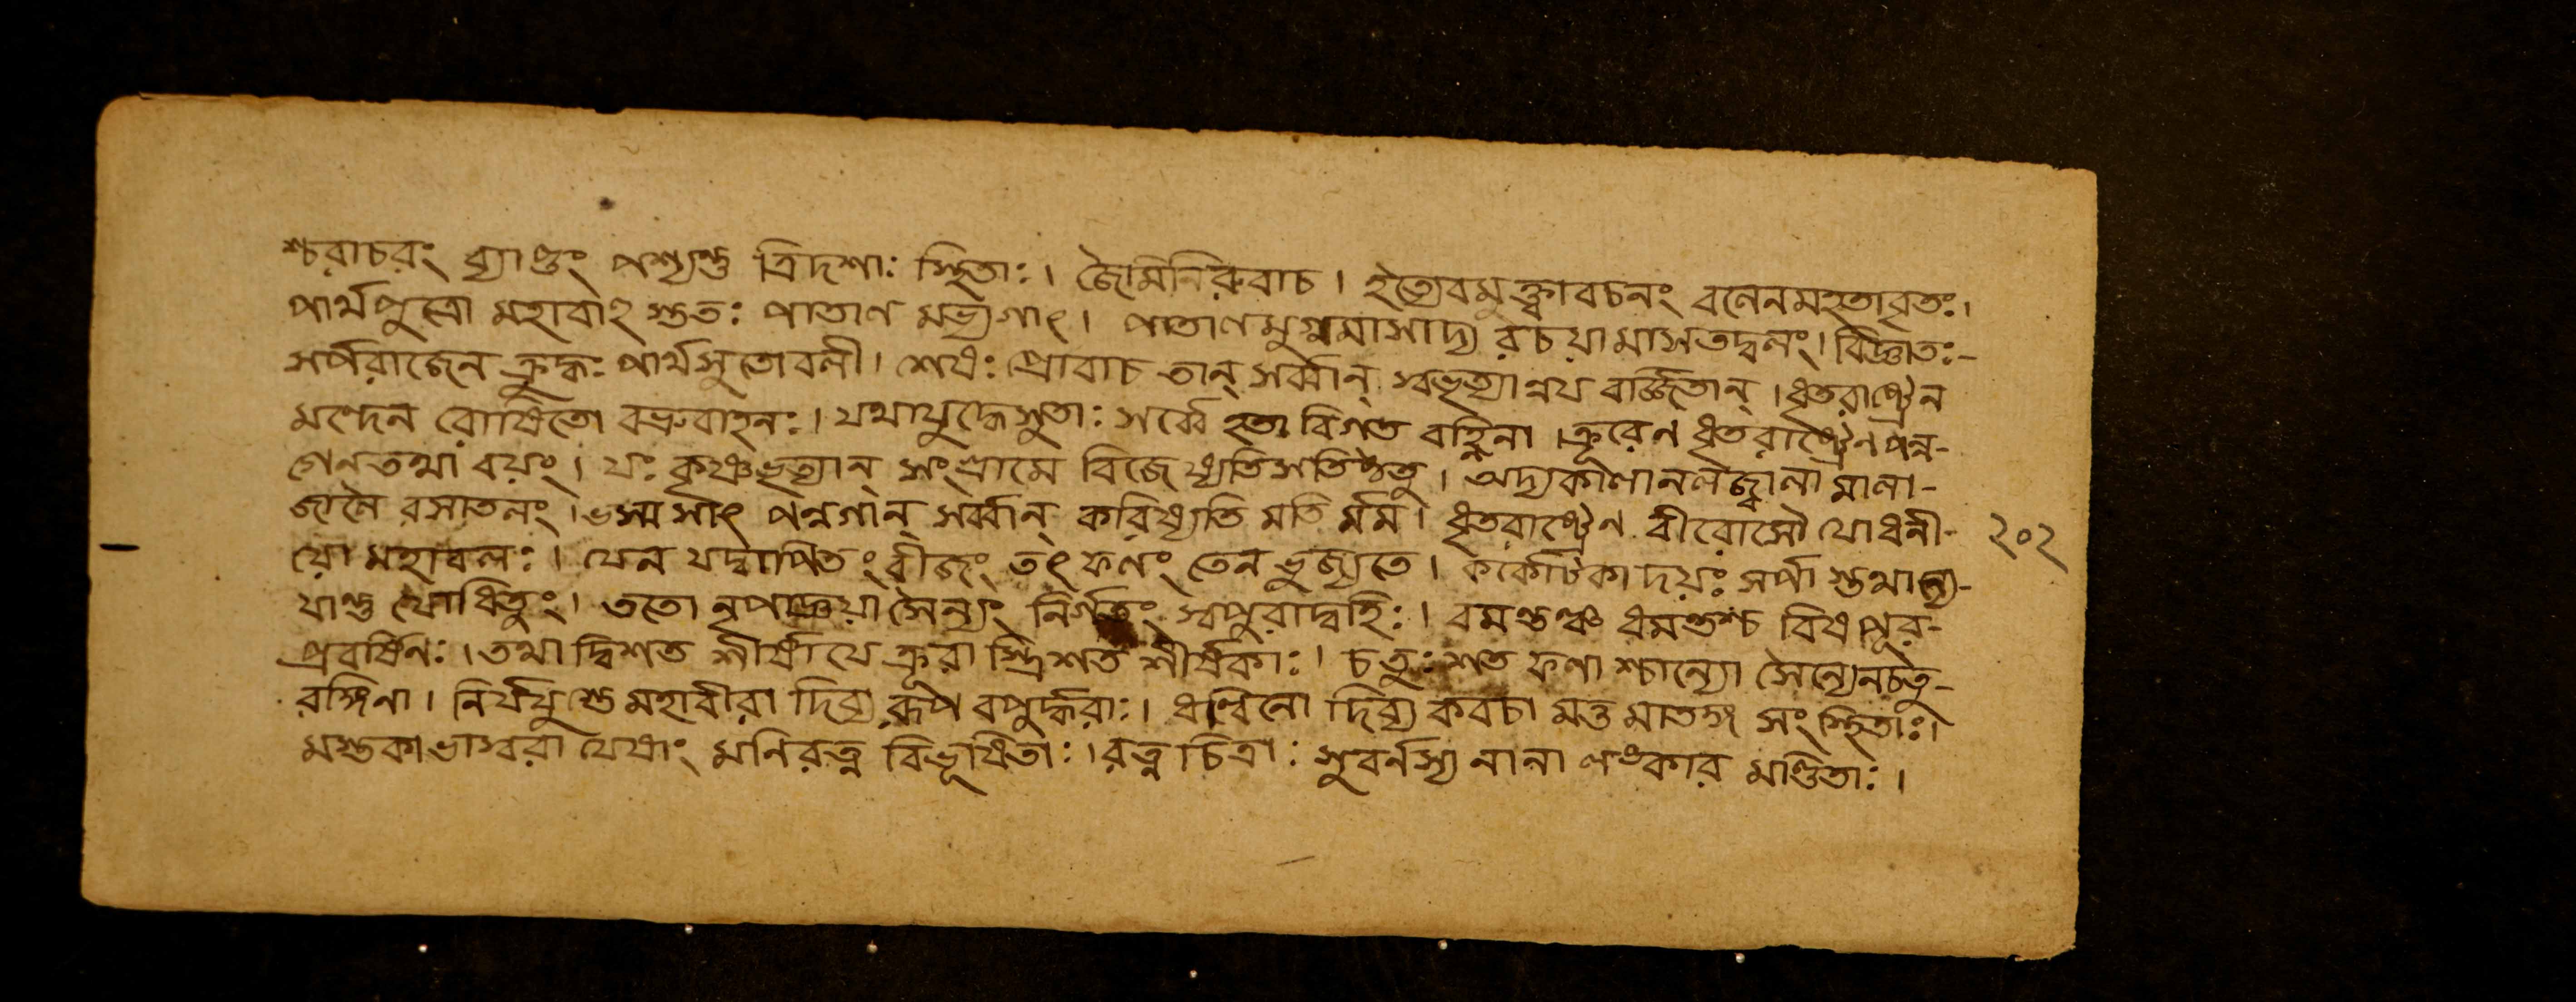 শ্চরাচরং ব্যাপ্তং পশ্যন্তু ত্রিদশাঃ স্থিতাঃ। জৈমিনিরুবাচ। ইত্যেবমুক্ত্বাবচনং বলেনমহতাবৃতঃ।
পার্থপুত্রো মহাবাহু স্ততঃ পাতাল মভ্যগাৎ। পাতালমুগ্রমাসাদ্য রচয়ামাসতদ্বলং। বিজ্ঞাতঃ-
সর্পরাজেন ক্রুদ্ধঃ পার্থসুতোবলী। শেষঃ প্রোবাচ তান্ সর্ব্বান্ স্বভৃত্যান্নয বর্জ্জিতান্। ধৃতরাষ্ট্রেন
মন্দেন রোষিতো বভ্রুবাহনঃ। যথাযুদ্ধেসুতাঃ সর্ব্বে হতা বিগত বহ্নিনা। ক্রূরেণ ধৃতরাষ্ট্রেণপন্ন-
গেনতথা বয়ং। যঃ কৃষ্ণভৃত্যান্ সংগ্রামে বিজেষ্যতিসতিষ্ঠতু। অদ্যকালানলজ্বালা মালা-
জালৈ রসাতলং। ভস্মসাৎ পন্নগান্ সর্ব্বান্ করিষ্যতি মতি র্মম। ধৃতরাষ্ট্রেণ বীরোসৌ যোধনী- ২০২
য়ো মহাবলঃ। যেন যদ্বাপিতং বীজং তৎ ফলং তেন ভুজ্যতে। কর্কোটকাদয়ঃ সর্পা স্তথান্যে-
যান্তু যোধিতুং। ততো নৃপাজ্ঞয়া সৈন্যং নির্গতং স্বপুরাদ্বহিঃ। বমন্তঞ্চ ধমন্তশ্চ বিষপূর-
প্রবর্ষিনঃ। তথা দ্বিশত শীর্ষাযে ক্রূরা স্ত্রিশত শীর্ষকাঃ। চতুঃশত ফণা শ্চান্যে সৈন্যেনচতু-
রঙ্গিনা। নির্যযুস্তে মহাবীরা দিব্য রূপ বপুর্দ্ধরাঃ। ধন্বিনো দিব্য কবচা মত্ত মাতঙ্গ সংস্থিতাঃ।
মস্তকাভাস্বরা যেষাং মনিরত্ন বিভূষিতাঃ। রত্ন চিত্রাঃ সুবর্নস্য নানা লংকার মণ্ডিতাঃ।